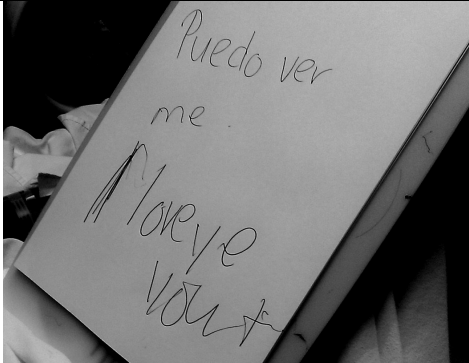 Puedo ver
me.
Moreye
you